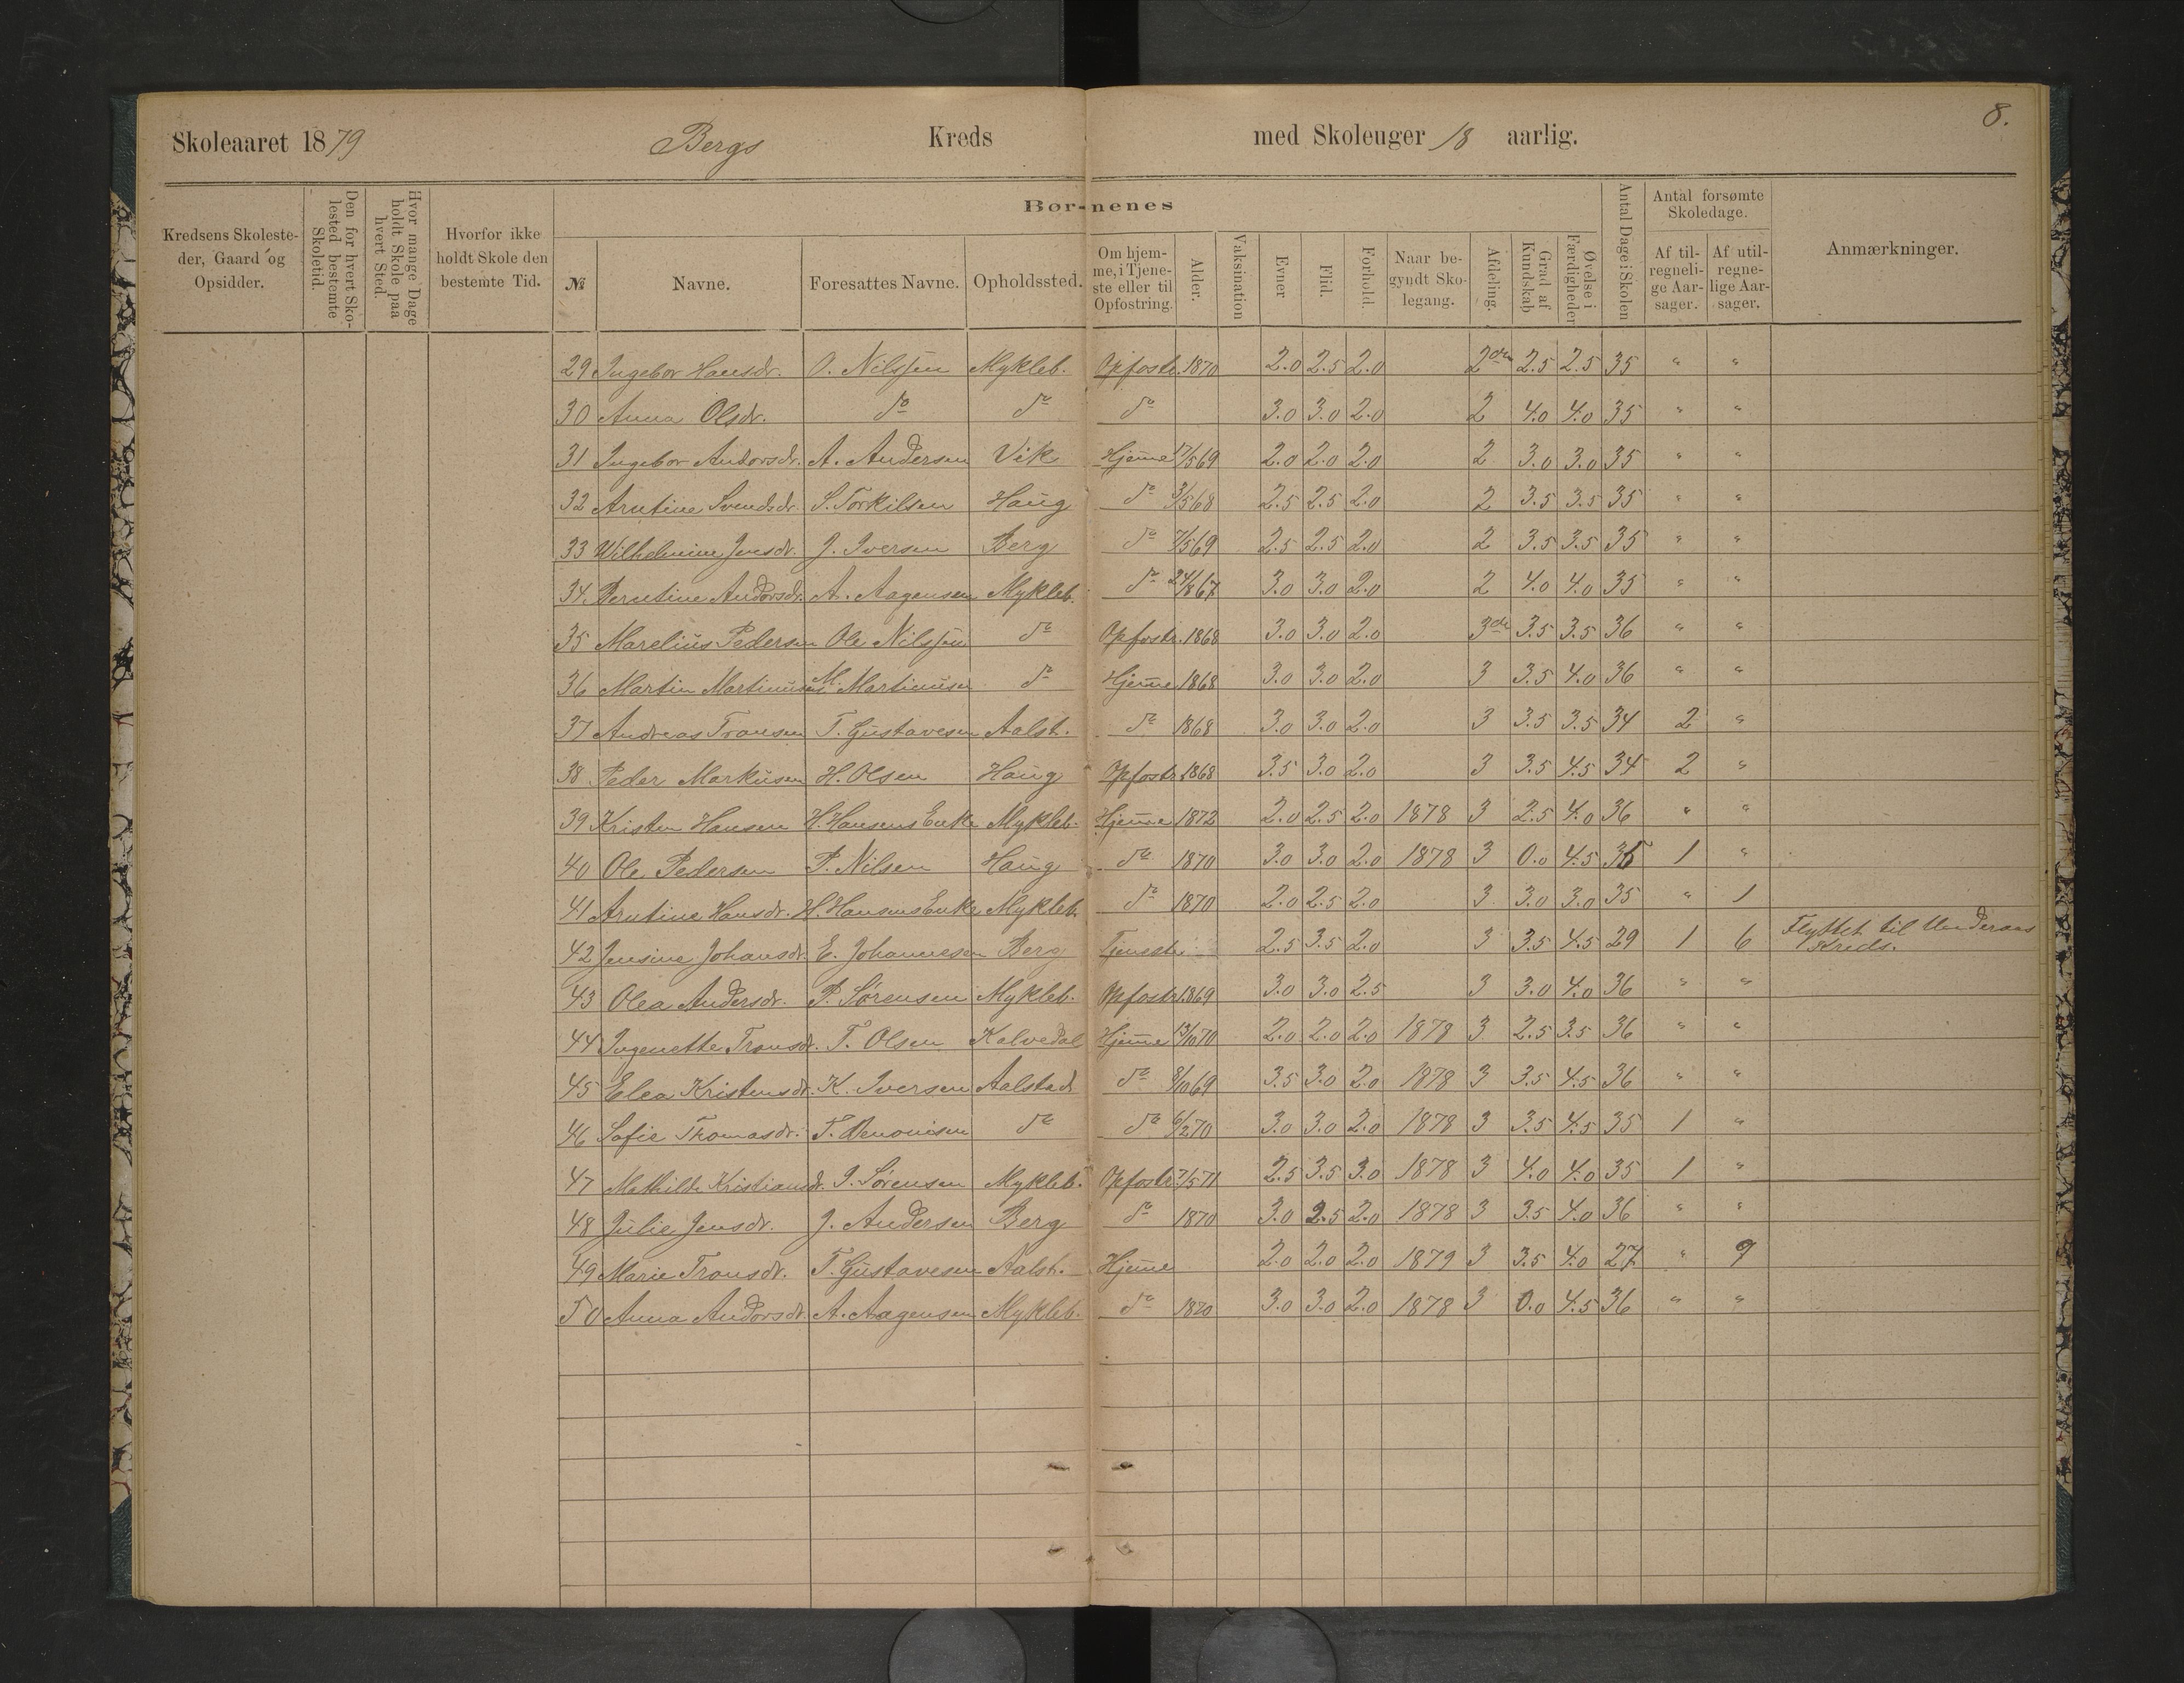 8.
Skoleaaret 1879 Bergs Kreds med Skoleuger 18 aarlig.
Kredsens Skolesteder, Gaard og Opsidder. Den for hvert Skolested bestemte Skoletid. Hvor mange Dage holdt Skole paa hvert Sted. Hvorfor ikke holdt Skole den bestemte Tid. Børnenes Antal Dage i Skolen Antal forsømte Skoledage. Anmærkninger.
№ Navne. Foresattes Navne. Opholdssted. Om hjemme, i Tjeneste eller til Opfostring. Alder. Vaksination Evner Flid. Forhold. Naar begyndt Skolegang. Afdeling. Grad af Kundskab Øvelse i Færdigheder Af tilregnelige Aarsager. Af utilregnelige Aarsager.
29 Ingebor Hansdr. O. Nilssen Mykleb. Opfostr. 1870 2.0 2.5 2.0 2den 2.5 2.5 35 " "
30 Anna Olsdr. do do do 3.0 3.0 2.0 2 4.0 4.0 35 " "
31 Ingebor Andorsdr. A. Andersen Vik Hjemme 17/5 69 2.0 2.0 2.0 2 3.0 3.0 35 " "
32 Arntine Svendsdr. S. Torkilsen Haug do 3/5 68 2.5 2.5 2.0 2 3.5 3.5 35 " "
33 Wilhelmine Jensdr. J. Iversen Berg do 7/5 69 2.5 2.5 2.0 2 3.5 3.5 35 " "
34. Berntine Andorsdr. A. Aagensen Mykleb. do 24/8 67 3.0 3.0 2.0 2 4.0 4.0 35 " "
35 Marelius Pedersen Ole Nilssen do Opfostr. 1868 3.0 3.0 2.0 3de 3.5 3.5 36 " "
36 Martin Martinusen M. Martinusen do Hjemme 1868 3.0 3.0 2.0 3 3.5 4.0 36 " "
37 Andreas Tronsen T. Gustavesen Aalst. do 1868 3.0 3.0 2.0 3 3.5 3.5 34 2 "
38 Peder Markusen H. Olsen Haug Opfostr. 1868 3.5 3.0 2.0 3 3.5 4.5 34 2 "
39 Kristen Hansen H. Hansens Enke Mykleb. Hjemme 1872 2.0 2.5 2.0 1878 3 2.5 4.0 36 " "
40 Ole Pedersen P. Nilsen Haug do 1870 3.0 3.0 2.0 1878 3 0.0 4.5 35 1 "
41 Arntine Hansdr. H. Hansens Enke Mykleb. do 1870 2.0 2.5 2.0 3 3.0 3.0 35 " 1
42 Jensine Johansdr. E. Johannesen Berg Tjeneste. 2.5 3.5 2.0 3 3.5 4.5 29 1 6 Flyttet til Underaas Kreds.
43 Olea Andersdr. P. Sørensen Mykleb. Opfostr. 1869 3.0 3.0 2.5 3 3.0 4.0 36 " "
44 Ingenette Tronsdr. T. Olsen Kalvedal Hjemme 13/10 70 2.0 2.0 2.0 1878 3 2.5 3.5 36 " "
45 Elea Kristensdr. K. Iversen Aalstad do 8/10 69 3.5 3.0 2.0 1878 3 3.5 4.5 36 " "
46 Sofie Thomasdr. T. Benonisen do do 6/2 70 3.0 3.0 2.0 1878 3 3.5 4.5 35 1 "
47 Mathilde Kristiansdr. I. Sørensen Mykleb. Opfostr. 7/5 71 2.5 3.5 3.0 1878 3 4.0 4.0 35 1 "
48 Julie Jensdr. J. Andersen Berg do 1870 3.0 2.5 2.0 1878 3 3.5 4.0 36 " "
49 Marie Tronsdr. T. Gustavesen Aalst. Hjemme 2.0 2.0 2.0 1879 3 3.5 4.0 27 " 9
50 Anna Andorsdr. A. Aagensen Mykleb. do 1870 3.0 3.0 2.0 1878 3 0.0 4.5 36 " "